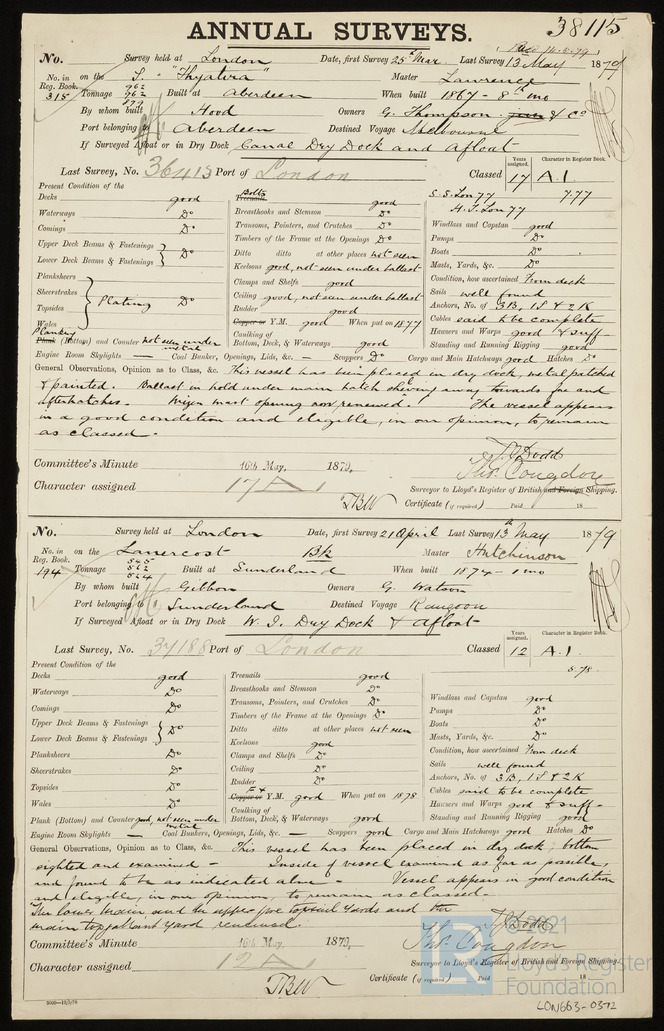 38115
ANNUAL SURVEYS.
Rec 14.5.79
No. Survey held at London Date, first Survey 25th Mar Last Survey 13 May 1879
No. in Reg. Book. 315 on the S. "Thyatira" Master Lawrence
Tonnage 962 962 Built at Aberdeen When built 1867 - 8th mo
By whom built Hood Owners G. Thompson & Co
Port belonging to Aberdeen Destined Voyage Melbourne
If Surveyed Afloat or in Dry Dock Canal Dry Dock and Afloat
Last Survey, No. 36413 Port of London Classed Years assigned. 17 Character in Register Book. A.1.
S.S. Lon 77 7.77
H.T. Lon 77
Present Condition of the
Decks good
Waterways Do
Comings Do
Upper Deck Beams & Fastenings
Lower Deck Beams & Fastenings } Do
Planksheers
Sheerstrakes
Topsides
Wales } Plating Do
Planking Plank (Bottom) and Counter not seen under metal
Bolts Treenails good
Breasthooks and Stemson Do
Transoms, Pointers, and Crutches Do
Timbers of the Frame at the Openings Do
Ditto ditto at other places not seen
Keelsons good, not seen under ballast
Clamps and Shelfs good
Ceiling good, not seen under ballast
Rudder good
Copper or Y.M. good When put on 1877
Caulking of Bottom, Deck, & Waterways good
Windlass and Capstan good
Pumps Do
Boats Do
Masts, Yards, &c. Do
Condition, how ascertained From deck
Sails well found
Anchors, No. of 3B, 1S & 2K
Cables said to be complete
Hawsers and Warps good & suff-
Standing and Running Rigging good
Engine Room Skylights — Coal Bunker, Openings, Lids, &c. — Scuppers Do Cargo and Main Hatchways good Hatches Do
General Observations, Opinion as to Class, &c. This vessel has been placed in dry dock, metal patched
& painted. Ballast in hold under main hatch shewing away towards fore and
afterhatches. Mizen mast opening now renewed. The vessel appears
in a good condition and eligible, in our opinion, to remain
as classed.
J. Dodds
Thos. Congdon
Committee's Minute 16th May, 1879,
Character assigned 17 A 1
TBW
Surveyor to Lloyd's Register of British and Foreign Shipping.
Certificate (if required) Paid 18
No. Survey held at London Date, first Survey 21 April Last Survey 13th May 1879
No. in Reg. Book. 194 on the Lanercost Bk Master Hutchinson
Tonnage 545 562 544 Built at Sunderland When built 1874 - 1 mo
By whom built Gibbon Owners G. Watson
Port belonging to Sunderland Destined Voyage Rangoon
If Surveyed Afloat or in Dry Dock W. I. Dry Dock & Afloat
Last Survey, No. 37188 Port of London Classed Years assigned. 12 Character in Register Book. A.1.
5.78
Present Condition of the
Decks good
Waterways Do
Comings Do
Upper Deck Beams & Fastenings
Lower Deck Beams & Fastenings } Do
Planksheers Do
Sheerstrakes Do
Topsides Do
Wales Do
Plank (Bottom) and Counter good, not seen under metal
Treenails good
Breasthooks and Stemson Do
Transoms, Pointers, and Crutches Do
Timbers of the Frame at the Openings Do
Ditto ditto at other places not seen
Keelsons good
Clamps and Shelfs Do
Ceiling Do
Rudder Do
Copper or Y.M. good When put on 1878
Caulking of Bottom, Deck, & Waterways good
Windlass and Capstan good
Pumps Do
Boats Do
Masts, Yards, &c. Do
Condition, how ascertained From deck
Sails well found
Anchors, No. of 3B, 1S & 2K
Cables said to be complete
Hawsers and Warps good & suff-
Standing and Running Rigging good
Engine Room Skylights — Coal Bunkers, Openings, Lids, &c. — Scuppers good Cargo and Main Hatchways good Hatches Do
General Observations, Opinion as to Class, &c. This vessel has been placed in dry dock, bottom
sighted and examined - Inside of vessel examined as far as possible
and found to be as indicated above - Vessel appears in good condition
and eligible, in our opinion, to remain as classed.
The lower main and the upper fore topsail yards and the
main topgallant yard renewed.
J. Dodds
Thos. Congdon
Committee's Minute 16th May, 1879,
Character assigned 12 A 1
TBW
Surveyor to Lloyd's Register of British and Foreign Shipping.
Certificate (if required) Paid 18
© 2021
Lloyd's Register
Foundation
LON663-0372